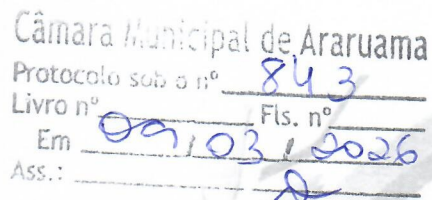 Câmara Municipal de Araruama
Protocolo sob o nº 843
Livro nº Fls. nº
Em 09 / 03 / 2026
Ass.: